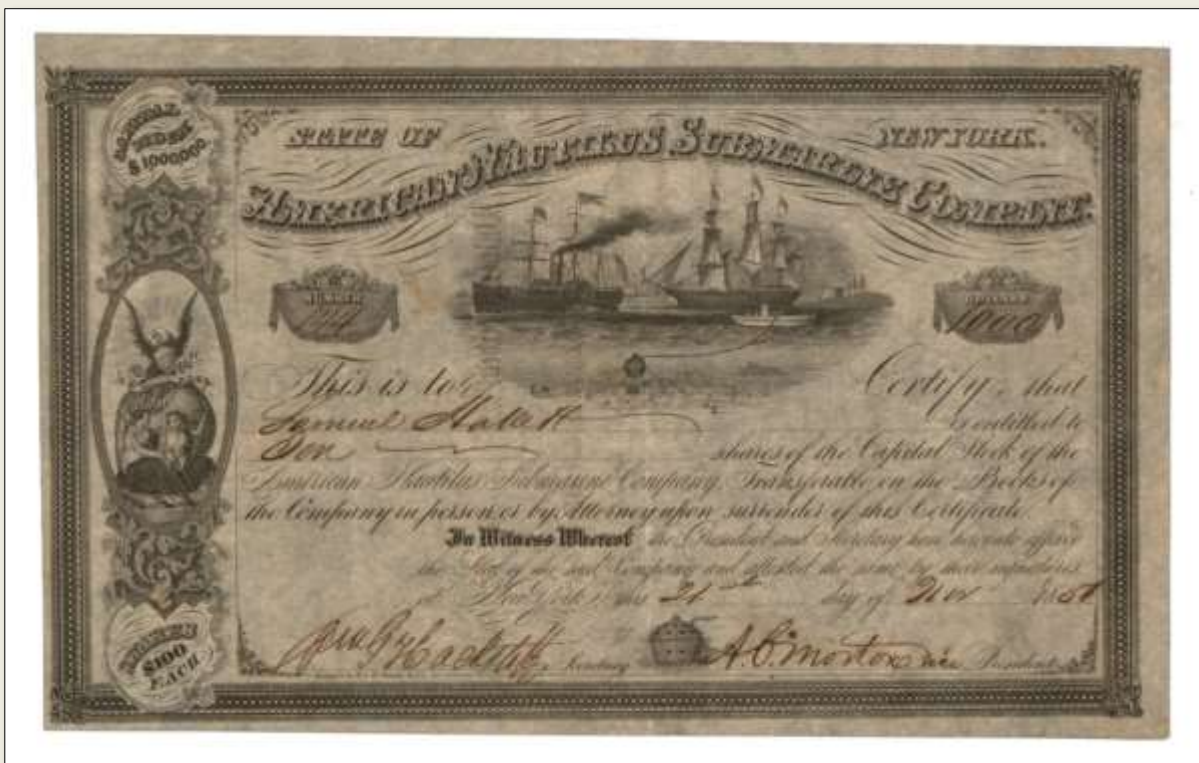 CAPITAL
STOCK
$1000000.
STATE OF NEW YORK.
AMERICAN NAUTILUS SUBMARINE COMPANY.
NUMBER
DOLLARS
1000
This is to Certify, that
Samuel Hallett is entitled to
Ten shares of the Capital Stock of the
American Nautilus Submarine Company, Transferable on the Books of
the Company in person or by Attorney upon surrender of this Certificate.
In Witness Whereof the President and Secretary have hereunto affixed
the Seal of the said Company and attested the same by their signatures
at New York this 21st day of Nov 1858
Secretary A. C. Morton vice President
SHARES
$100
EACH